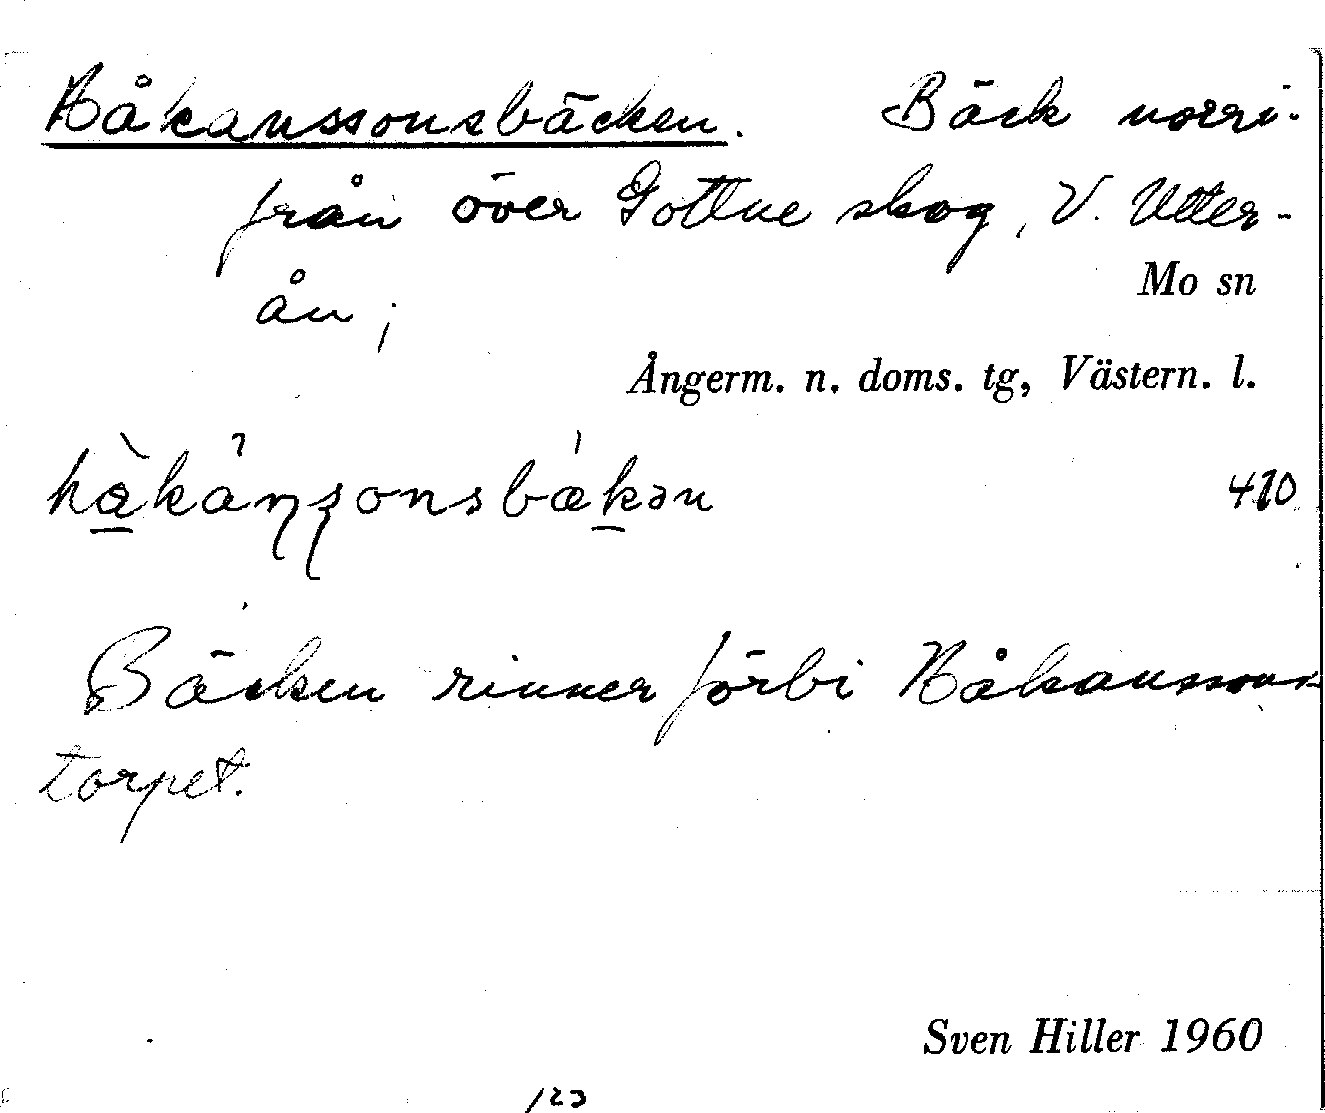 Håkanssonsbäcken. Bäck norri-
från över Gottne skog, V. Utter-
ån;
Mo sn
Ångerm. n. doms. tg, Västern. l.
håkånsonsbäkən 410
Bäcken rinner förbi Håkanssons-
torpet.
Sven Hiller 1960
123